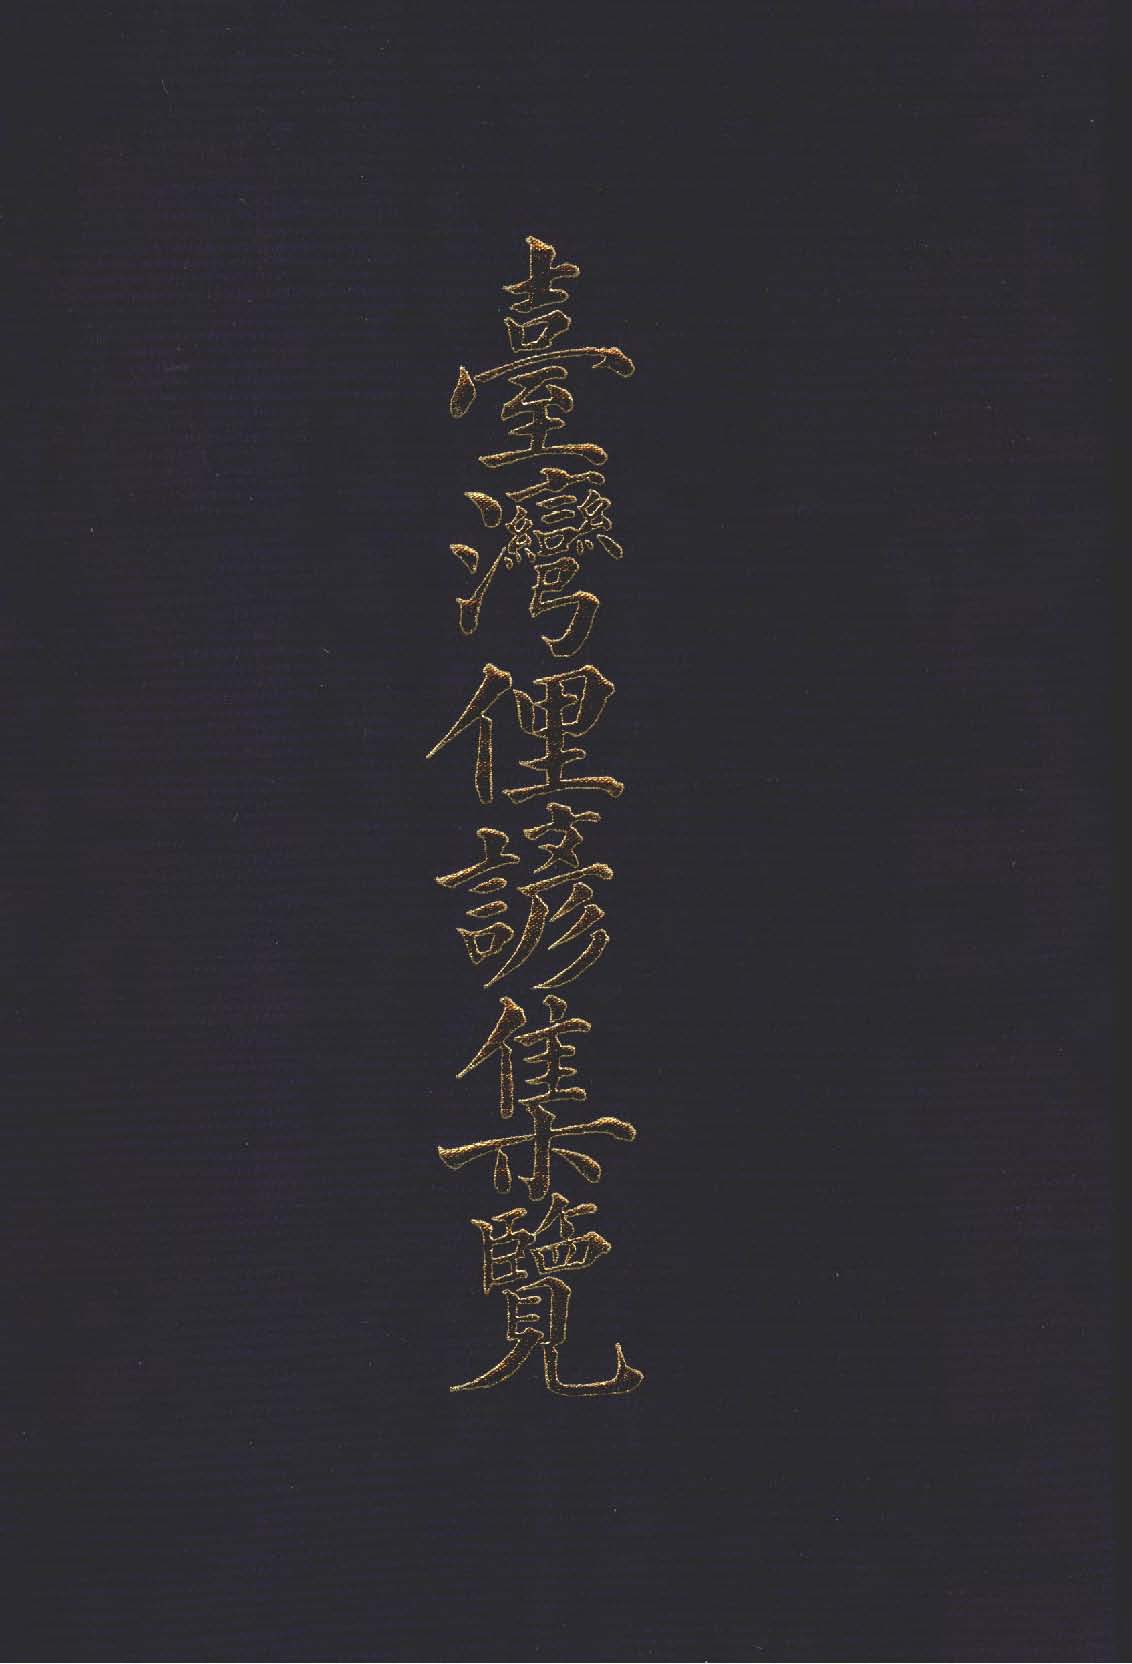 臺灣俚諺集覽